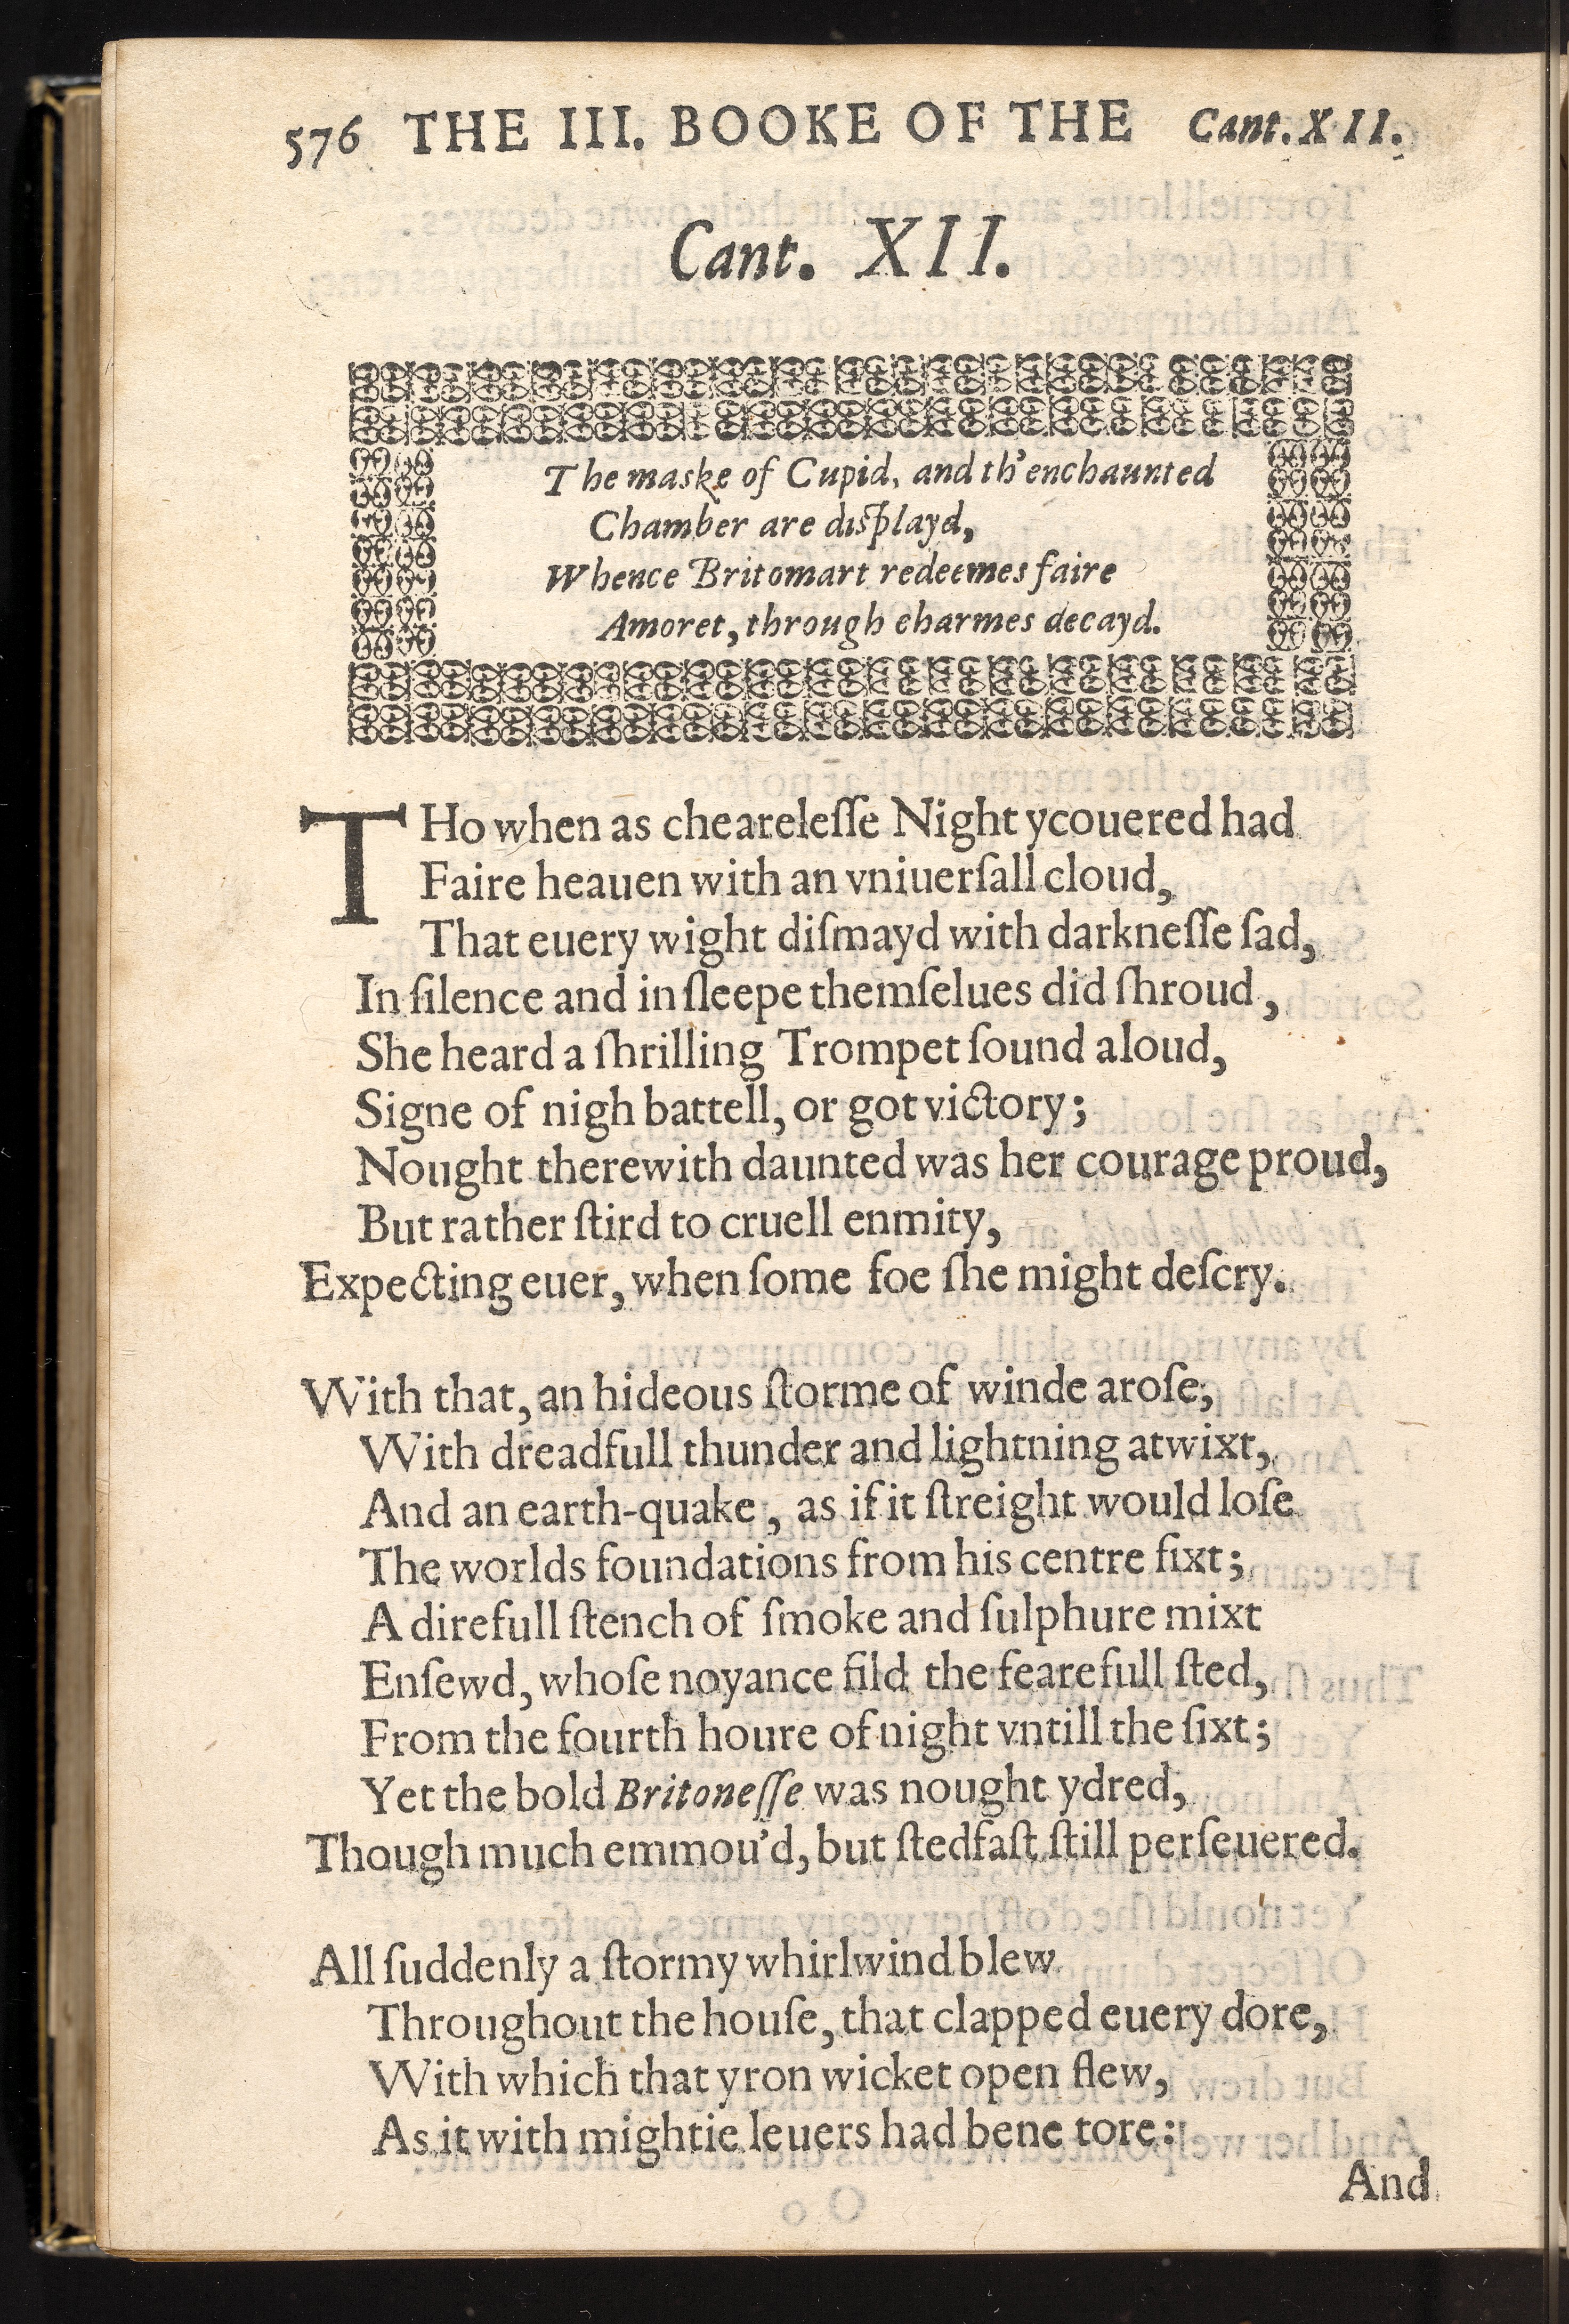 576 THE III. BOOKE OF THE Cant. XII.
Cant. XII.
The maske of Cupid, and th'enchaunted
Chamber are diſplayd,
Whence Britomart redeemes faire
Amoret, through charmes decayd.
THo when as cheareleſſe Night ycouered had
Faire heauen with an vniuerſall cloud,
That euery wight diſmayd with darkneſſe ſad,
In ſilence and in ſleepe themſelues did ſhroud,
She heard a ſhrilling Trompet ſound aloud,
Signe of nigh battell, or got victory;
Nought therewith daunted was her courage proud,
But rather ſtird to cruell enmity,
Expecting euer, when ſome foe ſhe might deſcry.
With that, an hideous ſtorme of winde aroſe,
With dreadfull thunder and lightning atwixt,
And an earth-quake, as if it ſtreight would loſe
The worlds foundations from his centre fixt;
A direfull ſtench of ſmoke and ſulphure mixt
Enſewd, whoſe noyance fild the fearefull ſted,
From the fourth houre of night vntill the ſixt;
Yet the bold Britoneſſe was nought ydred,
Though much emmou'd, but ſtedfaſt ſtill perſeuered.
All ſuddenly a ſtormy whirlwind blew
Throughout the houſe, that clapped euery dore,
With which that yron wicket open flew,
As it with mightie leuers had bene tore:
And